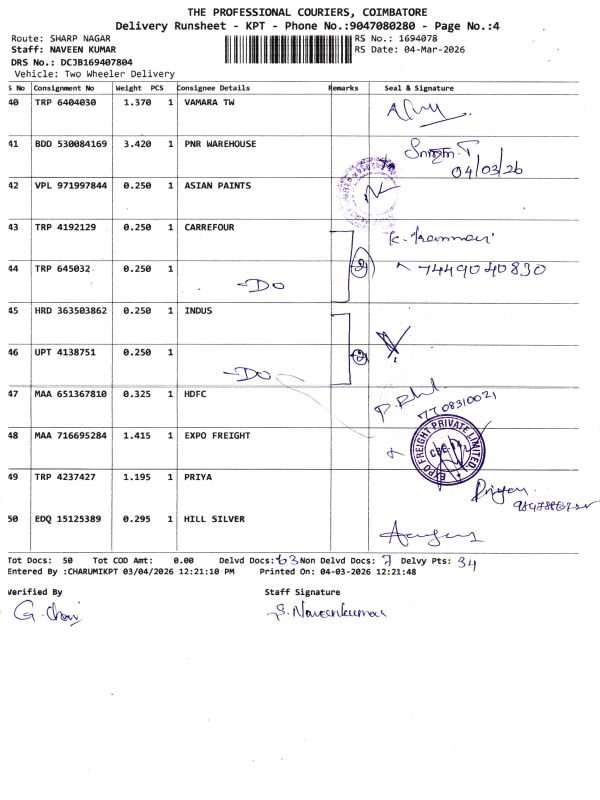 THE PROFESSIONAL COURIERS, COIMBATORE
Delivery Runsheet - KPT - Phone No.:9047080280 - Page No.:4
Route: SHARP NAGAR
RS No.: 1694078
Staff: NAVEEN KUMAR
RS Date: 04-Mar-2026
DRS No.: DCJB169407804
Vehicle: Two Wheeler Delivery
S No Consignment No Weight PCS Consignee Details Remarks Seal & Signature
40 TRP 6404030 1.370 1 VAMARA TW
41 BDD 530084169 3.420 1 PNR WAREHOUSE
04/03/26
42 VPL 971997844 0.250 1 ASIAN PAINTS
43 TRP 4192129 0.250 1 CARREFOUR
44 TRP 645032 0.250 1 -Do 2 7449040830
45 HRD 363503862 0.250 1 INDUS
46 UPT 4138751 0.250 1 -Do 2
47 MAA 651367810 0.325 1 HDFC
7708310021
48 MAA 716695284 1.415 1 EXPO FREIGHT
EXPO FREIGHT PRIVATE LIMITED
49 TRP 4237427 1.195 1 PRIYA
50 EDQ 15125389 0.295 1 HILL SILVER
Tot Docs: 50 Tot COD Amt: 0.00 Delvd Docs: 63 Non Delvd Docs: 7 Delvy Pts: 34
Entered By :CHARUMIKPT 03/04/2026 12:21:10 PM Printed On: 04-03-2026 12:21:48
Verified By Staff Signature
S. Naveenkumar